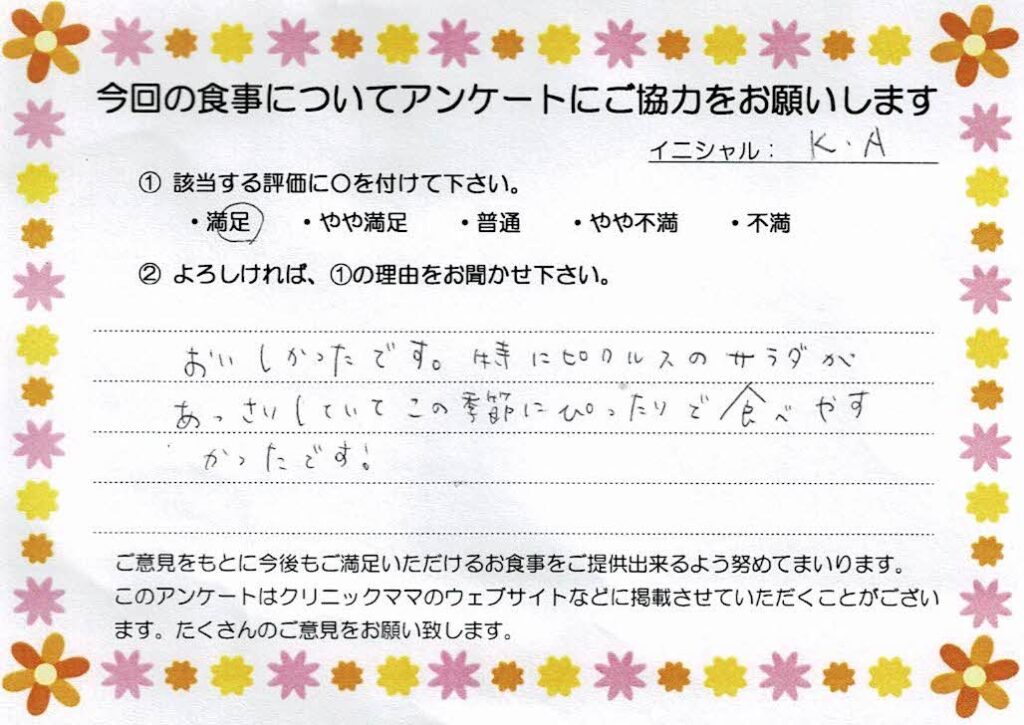 今回の食事についてアンケートにご協力をお願いします
イニシャル： K.A
① 該当する評価に〇を付けて下さい。
・満足 ・やや満足 ・普通 ・やや不満 ・不満
② よろしければ、①の理由をお聞かせ下さい。
おいしかったです。特にピクルスのサラダが
あっさりしていてこの季節にぴったりで食べやす
かったです!
ご意見をもとに今後もご満足いただけるお食事をご提供出来るよう努めてまいります。
このアンケートはクリニックママのウェブサイトなどに掲載させていただくことがござい
ます。たくさんのご意見をお願い致します。